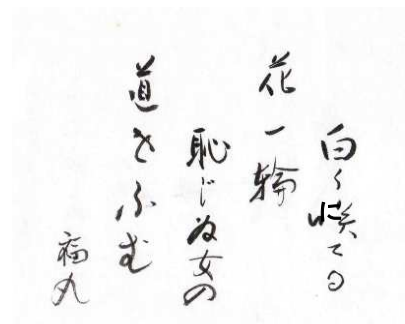 白く咲てる
花一輪
恥じぬ女の
道をふむ
福丸